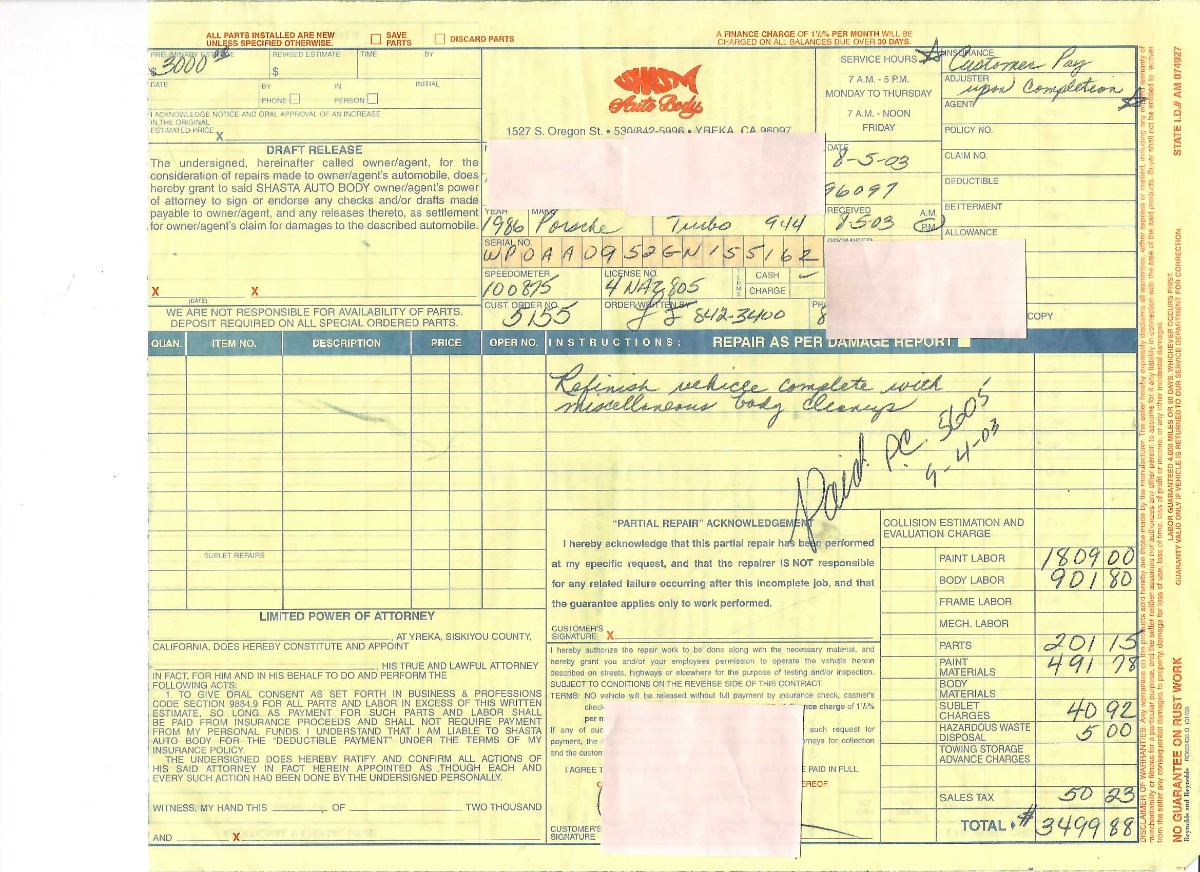 ALL PARTS INSTALLED ARE NEW
UNLESS SPECIFIED OTHERWISE.
SAVE PARTS
DISCARD PARTS
A FINANCE CHARGE OF 1½% PER MONTH WILL BE
CHARGED ON ALL BALANCES DUE OVER 30 DAYS.
PRELIMINARY ESTIMATE
$3000
REVISED ESTIMATE
$
TIME
BY
DATE
BY
PHONE
IN
PERSON
INITIAL
I ACKNOWLEDGE NOTICE AND ORAL APPROVAL OF AN INCREASE
IN THE ORIGINAL
ESTIMATED PRICE X
DRAFT RELEASE
The undersigned, hereinafter called owner/agent, for the
consideration of repairs made to owner/agent's automobile, does
hereby grant to said SHASTA AUTO BODY owner/agent's power
of attorney to sign or endorse any checks and/or drafts made
payable to owner/agent, and any releases thereto, as settlement
for owner/agent's claim for damages to the described automobile.
X X
(DATE)
WE ARE NOT RESPONSIBLE FOR AVAILABILITY OF PARTS.
DEPOSIT REQUIRED ON ALL SPECIAL ORDERED PARTS.
SHASTA
Auto Body
1527 S. Oregon St. • 530/842-5996 • YREKA, CA 96097
SERVICE HOURS
7 A.M. - 5 P.M.
MONDAY TO THURSDAY
7 A.M. - NOON
FRIDAY
DATE
8-5-03
96097
YEAR
1986
MAKE
Porsche
Turbo 944
RECEIVED
8-5-03
A.M.
P.M.
SERIAL NO.
WP0AA0952GN155162
PROMISED
SPEEDOMETER
100875
LICENSE NO.
4NAZ805
TERMS
CASH
CHARGE
CUST. ORDER NO.
5155
ORDER WRITTEN BY
842-3400
INSURANCE
Customer Pay
ADJUSTER
upon Completion
AGENT
POLICY NO.
CLAIM NO.
DEDUCTIBLE
BETTERMENT
ALLOWANCE
COPY
QUAN.
ITEM NO.
DESCRIPTION
PRICE
OPER NO.
INSTRUCTIONS:
REPAIR AS PER DAMAGE REPORT
Refinish vehicle complete with
miscellaneous body cleanup
Paid P.C. 5605
9-4-03
SUBLET REPAIRS
LIMITED POWER OF ATTORNEY
, AT YREKA, SISKIYOU COUNTY,
CALIFORNIA, DOES HEREBY CONSTITUTE AND APPOINT
, HIS TRUE AND LAWFUL ATTORNEY
IN FACT, FOR HIM AND IN HIS BEHALF TO DO AND PERFORM THE
FOLLOWING ACTS:
1. TO GIVE ORAL CONSENT AS SET FORTH IN BUSINESS & PROFESSIONS
CODE SECTION 9884.9 FOR ALL PARTS AND LABOR IN EXCESS OF THIS WRITTEN
ESTIMATE, SO LONG AS PAYMENT FOR SUCH PARTS AND LABOR SHALL
BE PAID FROM INSURANCE PROCEEDS AND SHALL NOT REQUIRE PAYMENT
FROM MY PERSONAL FUNDS. I UNDERSTAND THAT I AM LIABLE TO SHASTA
AUTO BODY FOR THE "DEDUCTIBLE PAYMENT" UNDER THE TERMS OF MY
INSURANCE POLICY.
THE UNDERSIGNED DOES HEREBY RATIFY AND CONFIRM ALL ACTIONS OF
HIS SAID ATTORNEY IN FACT HEREIN APPOINTED AS THOUGH EACH AND
EVERY SUCH ACTION HAD BEEN DONE BY THE UNDERSIGNED PERSONALLY.
WITNESS, MY HAND THIS OF TWO THOUSAND
AND X
"PARTIAL REPAIR" ACKNOWLEDGEMENT
I hereby acknowledge that this partial repair has been performed
at my specific request, and that the repairer IS NOT responsible
for any related failure occurring after this incomplete job, and that
the guarantee applies only to work performed.
CUSTOMER'S
SIGNATURE X
I hereby authorize the repair work to be done along with the necessary material, and
hereby grant you and/or your employees permission to operate the vehicle herein
described on streets, highways or elsewhere for the purpose of testing and/or inspection.
SUBJECT TO CONDITIONS ON THE REVERSE SIDE OF THIS CONTRACT.
TERMS: NO vehicle will be released without full payment by insurance check, cashier's
check
finance charge of 1½%
per m
If any of suc
such request for
payment, the
rneys for collection
and the custom
I AGREE T
E PAID IN FULL
EREOF.
CUSTOMER'S
SIGNATURE
COLLISION ESTIMATION AND
EVALUATION CHARGE
PAINT LABOR 1809 00
BODY LABOR 901 80
FRAME LABOR
MECH. LABOR
PARTS 201 15
PAINT MATERIALS 491 78
BODY MATERIALS
SUBLET CHARGES 40 92
HAZARDOUS WASTE DISPOSAL 5 00
TOWING STORAGE
ADVANCE CHARGES
SALES TAX 50 23
TOTAL $ 3499 88
STATE I.D.# AM 074927
LABOR GUARANTEED 4,000 MILES OR 90 DAYS, WHICHEVER OCCURS FIRST.
GUARANTY VALID ONLY IF VEHICLE IS RETURNED TO OUR SERVICE DEPARTMENT FOR CORRECTION.
NO GUARANTEE ON RUST WORK
Reynolds and Reynolds